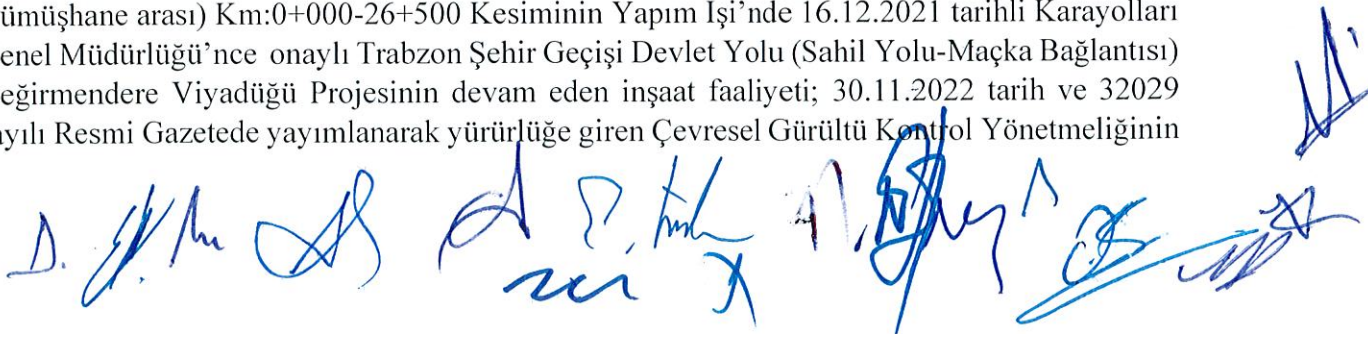 ümüşhane arası) Km:0+000-26+500 Kesiminin Yapım İşi’nde 16.12.2021 tarihli Karayolları
enel Müdürlüğü’nce onaylı Trabzon Şehir Geçişi Devlet Yolu (Sahil Yolu-Maçka Bağlantısı)
eğirmendere Viyadüğü Projesinin devam eden inşaat faaliyeti; 30.11.2022 tarih ve 32029
ayılı Resmi Gazetede yayımlanarak yürürlüğe giren Çevresel Gürültü Kontrol Yönetmeliğinin